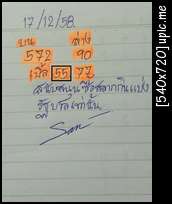 17/12/58
บน ล่าง
572 90
เน้น 55 77
สนับสนุนซื้อสลากกินแบ่ง
รัฐบาลเท่านั้น
[540x720] upic.me